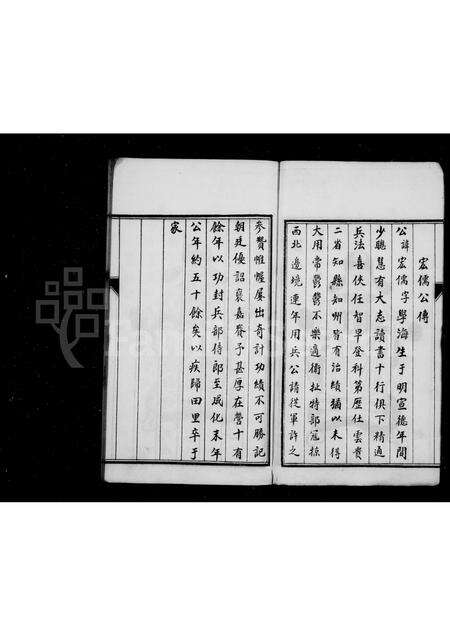 宏儒公傳
公諱宏儒字學海生于明宣德年間
少聰慧有大志讀書十行俱下精通
兵法喜俠任智早登科第歷仕雲貴
二省知縣知州皆有治績猶以未得
大用常鬱鬱不樂適衛扯特部寇掠
西北邊境連年用兵公請從軍許之
參贊帷幄屢出奇計功績不可勝記
朝廷優詔褒嘉賚予甚厚在營十有
餘年以功封兵部侍郎至成化末年
公年約五十餘矣以疾歸田里卒于
家